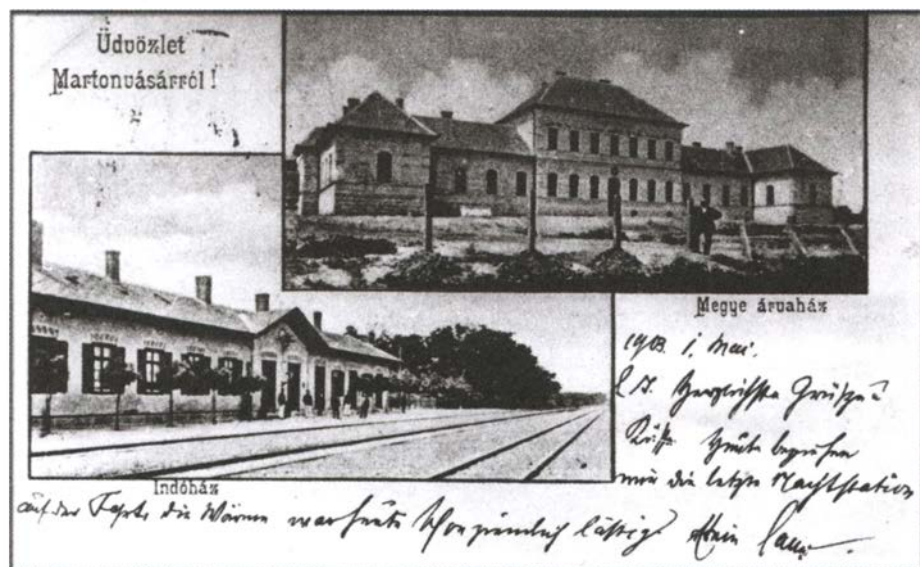 Üdvözlet
Martonvásárról!
Megye árvaház
1903. 1. Mai.
Herzlichste Grüsse u
Küsse Heute
wir die letzte Nachtstation
Indóház
auf der Fahrt, die Wärme war heute schon ziemlich lästig.